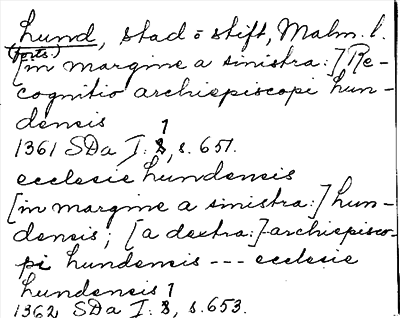 Lund, stad o stift, Malm. l.
(forts.)
[in margine a sinistra:] Re-
cognitio archiepiscopi Lun-
densis
1361 SDa I: 1, s. 651.
ecclesie Lundensis
[in margine a sinistra:] Lun-
densis; [a dextra:] archiepisco-
pi Lundensis --- ecclesie
Lundensis
1362 SDa I: 1, s. 653.